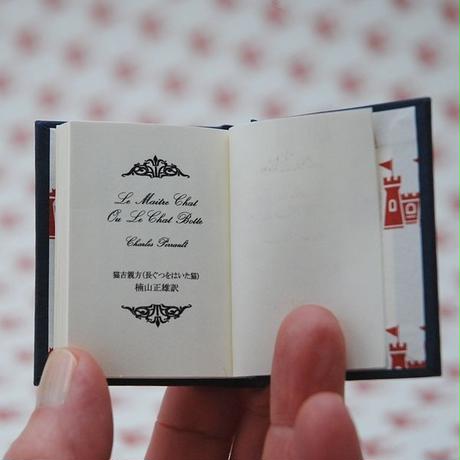 Le Maitre Chat
Ou Le Chat Botte
Charles Perrault
猫吉親方(長ぐつをはいた猫)
楠山正雄訳